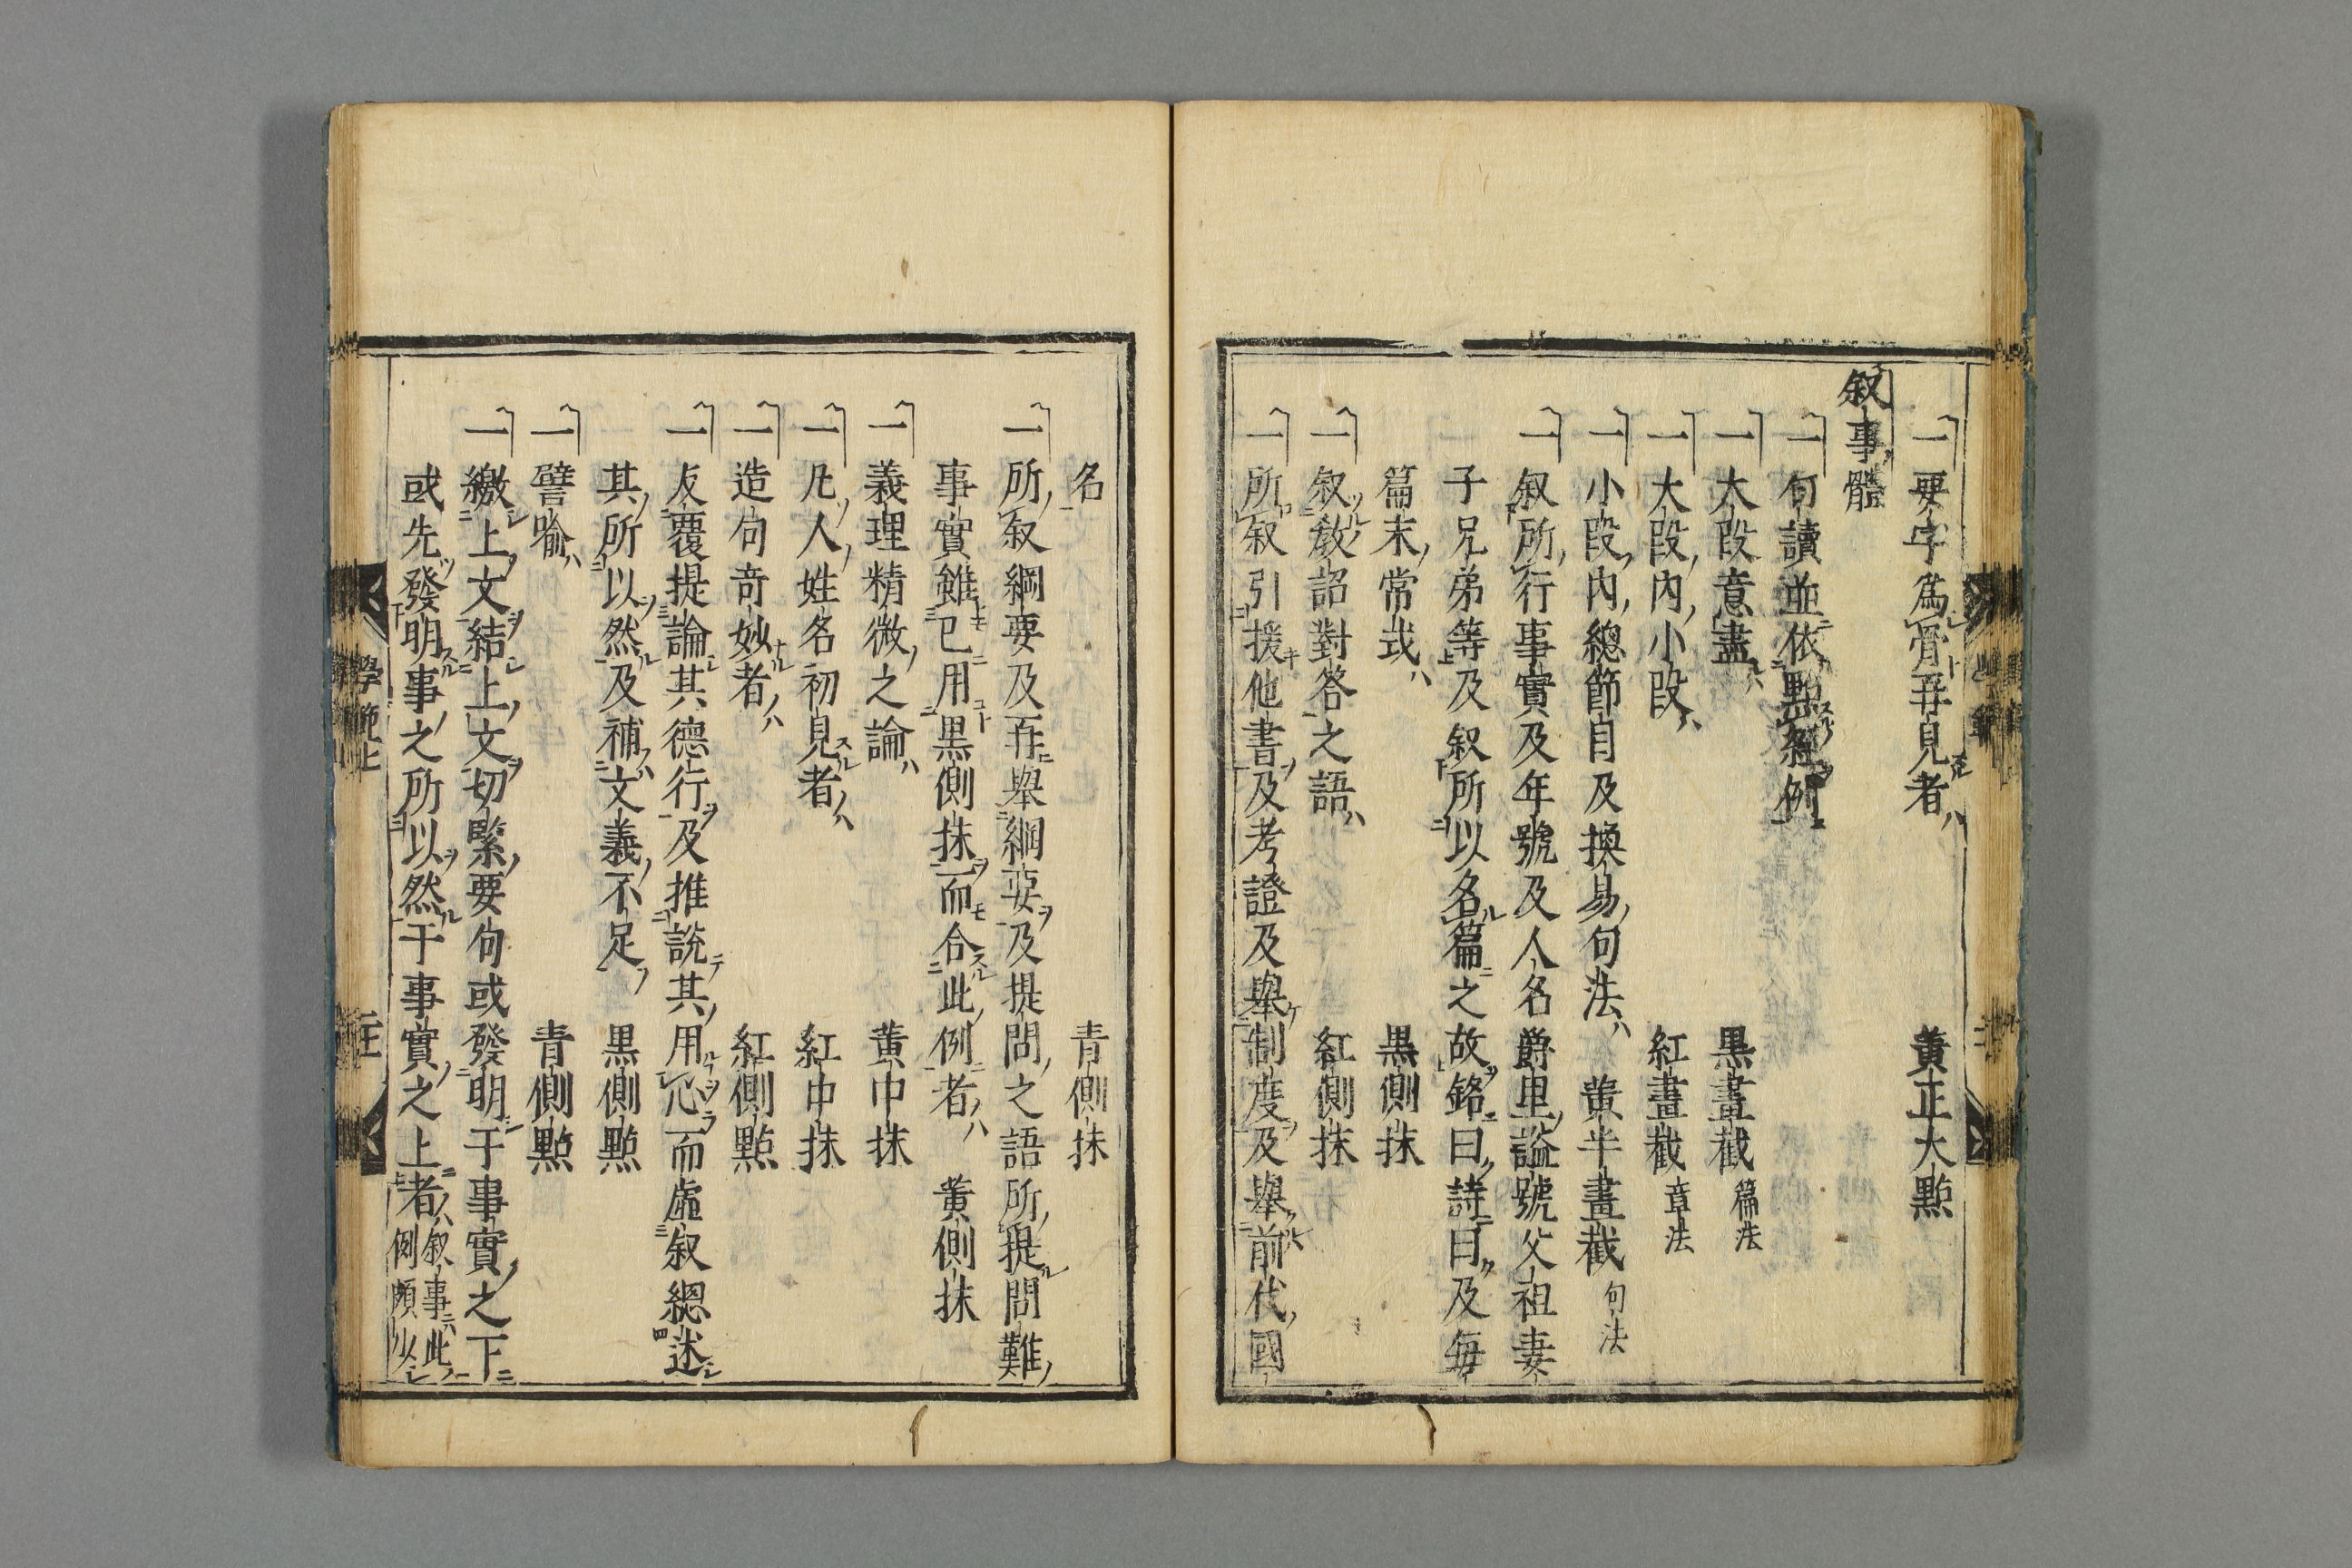 一要字爲骨再見者 黄正大點
叙事體
一句讀並依點經例
一大段意盡 黒畫截篇法
一大段內小段 紅畫截章法
一小段內總節目及換易句法 黄半畫截句法
一叙所行事實及年號及人名爵里謚號父祖妻
子兄弟等及叙所以名篇之故銘曰詩曰及每
篇末常式 黒側抹
一叙敎詔對答之語 紅側抹
一所叙引援他書及考證及舉制度及舉前代國
名 青側抹
一所叙綱要及再舉綱要及提問之語所提問難
事實雖已用黒側抹而合此例者 黄側抹
一義理精微之論 黄中抹
一凡人姓名初見者 紅中抹
一造句奇妙者 紅側點
一反覆提論其德行及推説其用心而虛叙總述
其所以然及補文義不足 黒側點
一譬喻 青側點
一繳上文結上文切緊要句或發明于事實之下
或先發明事之所以然于事實之上者叙事此
例頗少
學範上